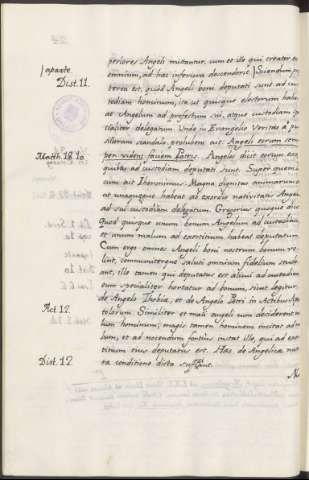 periores Angeli mittantur, cum et ille qui creator est
omnium, ad hæc inferiora descenderit.) Sciendum p
Dist. 11.
terea est, quòd Angeli boni deputati sunt ad cus
todiam hominum, ita ut quisque electorum habe
at Angelum ad profectum sui, atque custodiam sp
cialiter delegatum. Unde in Evangelio Veritas à pu
sillorum scandalo prohibens ait. Angeli eorum sem
Matth. 18. 10
per vident faciem Patris. Angelos dicit eorum esse
quibus ad custodiam deputati sunt. Super quem
cum ait Ihieronimus. Magna dignitas animarum
ut unaquæque habeat ab exordio nativitatis Angelum
ad sui custodiam delegatum. Gregorius quoque
Quod quisque unum bonum Angelum ad custodiam
et unum malum ad exercitium habeat deputatum.
Cum ergo omnes Angeli boni nostrum bonum ve
lint, communiterque saluti omnium fideliter stude
ant, ille tamen qui deputatus est alicui ad custodiam
eum specialiter hortatur ad bonum, sicut legitur
de Angelo Thobiæ, et de Angelo Petri in Actibus Apos
Act. 12.
tolorum. Similiter et mali angeli cum desiderent ma
lum hominum, magis tamen hominem incitat ad ma
lum, et ad nocendum fortius instat ille, qui ad exer
citium ejus deputatus est. Hæc de Angelica natu
Dist. 12.
ra conditione dicta sufficiant.